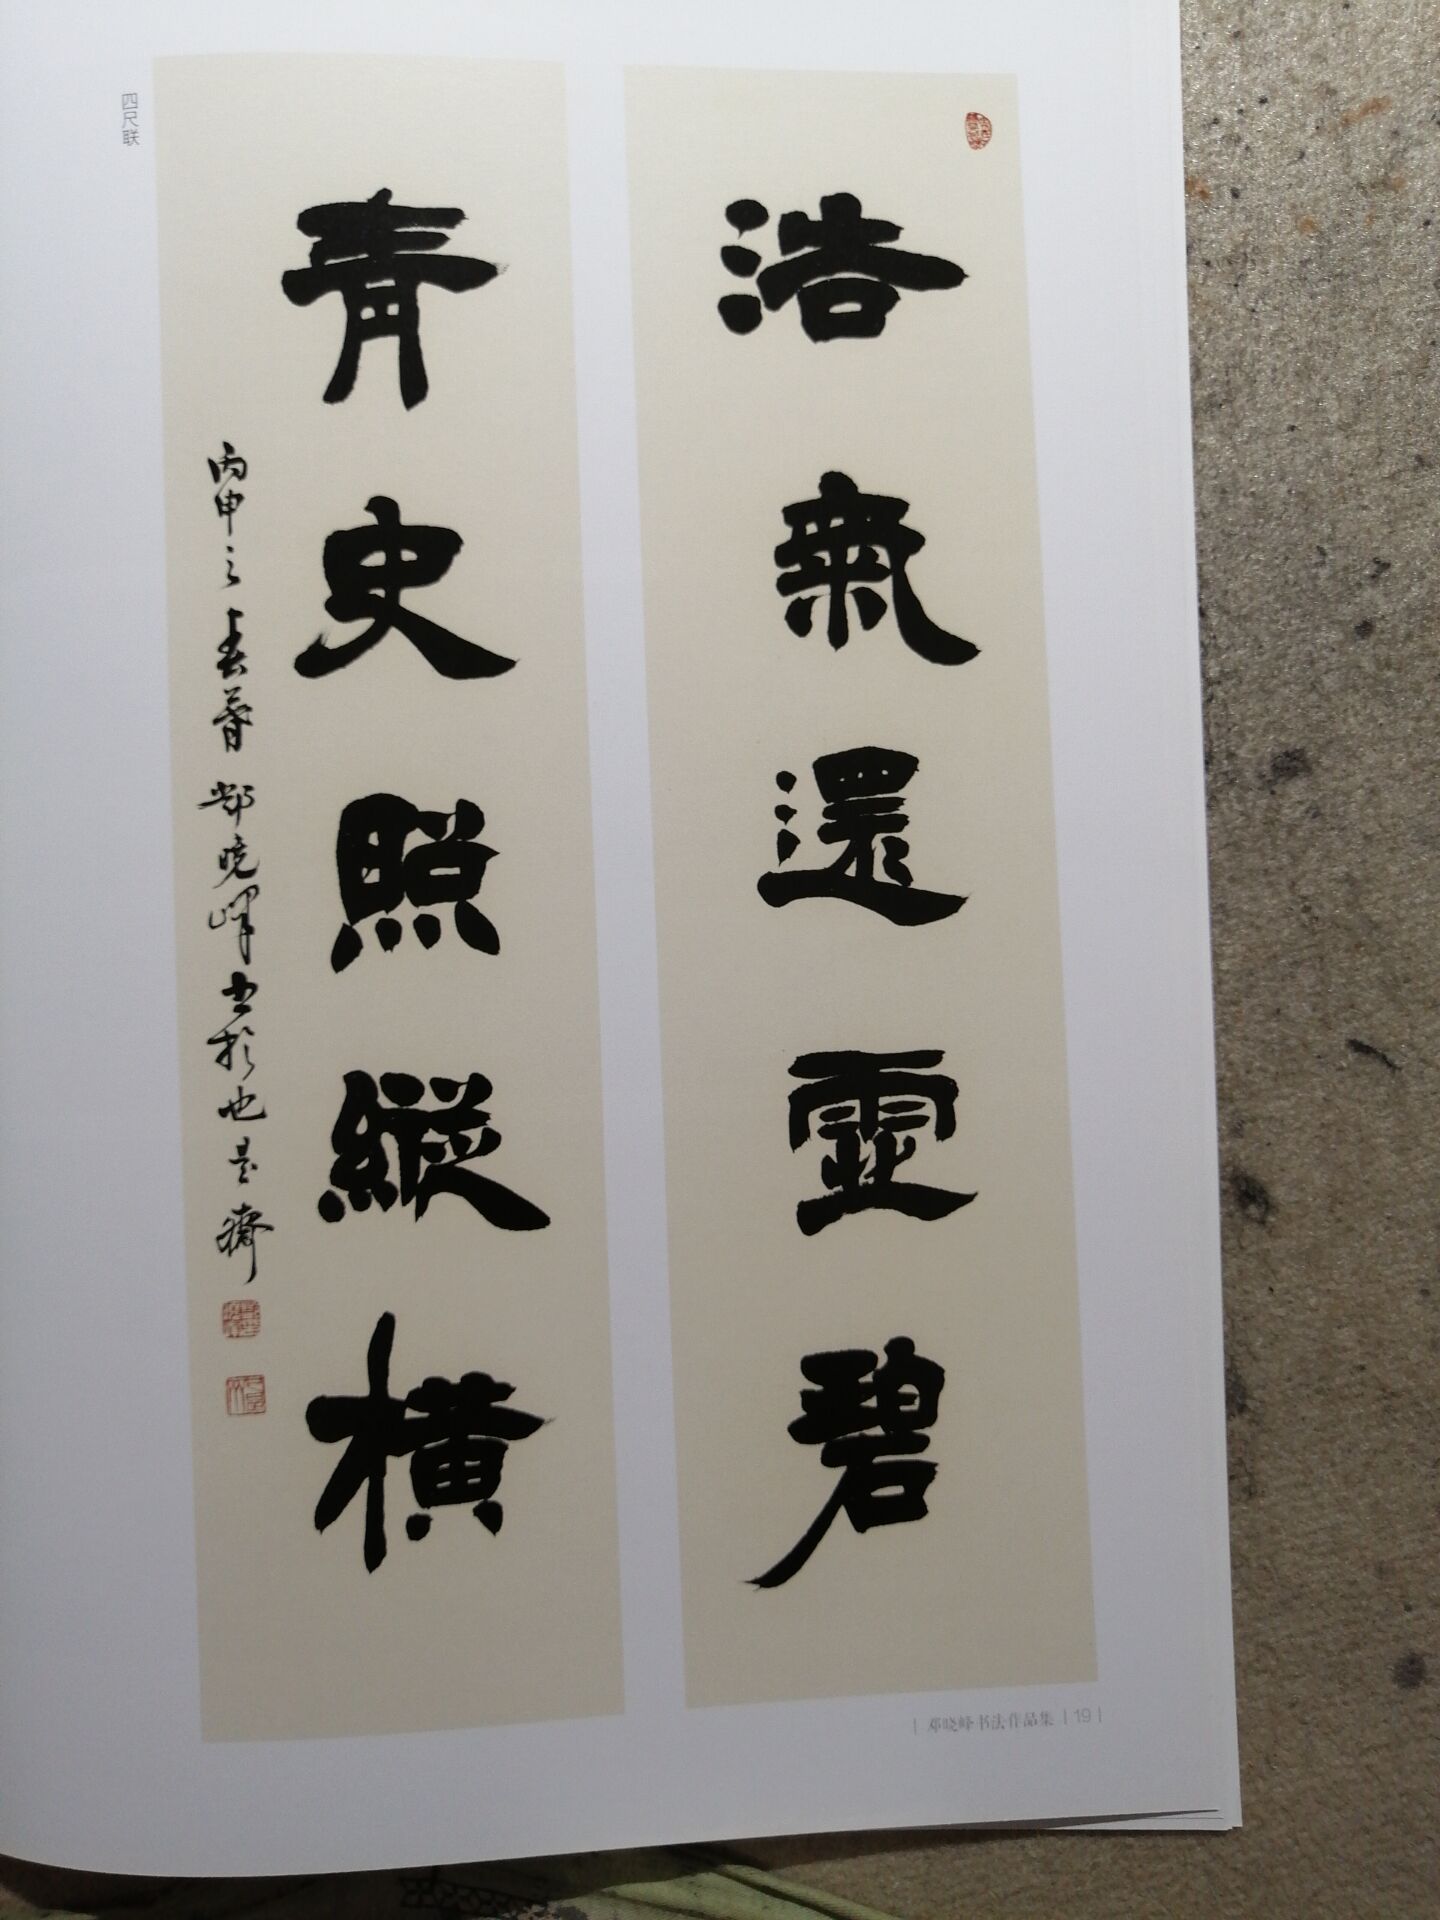 四尺联
浩氣還靈碧
青史照縱橫
丙申之春暮鄧晓峰书於也是齋
邓晓峰书法作品集 | 19 |